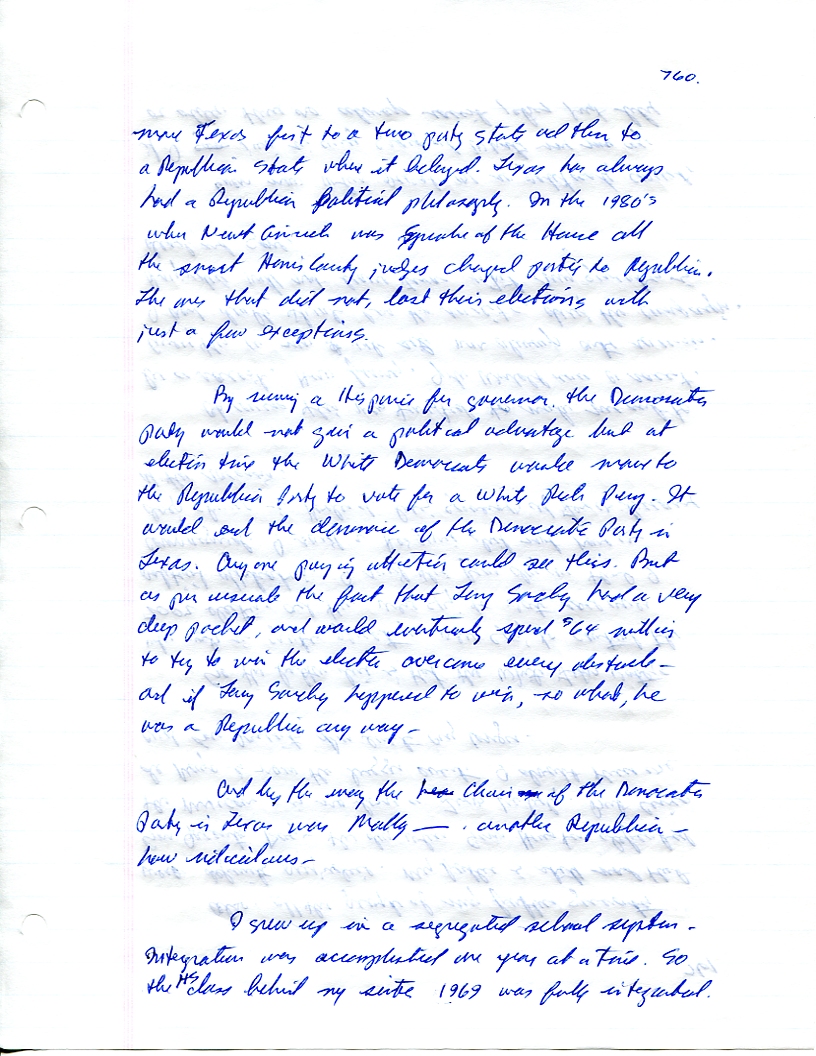 760.
move Texas first to a two party state and then to
a Republican State where it belonged. Texas has always
had a Republican Political philosophy. In the 1980's
when Newt Gingrich was Speaker of the House all
the smart Harris County judges changed parties to Republican.
The ones that did not, lost their elections with
just a few exceptions.
By running a Hispanic for governor. the Democratic
party would not gain a political advantage but at
election time the White Democrats would move to
the Republican Party to vote for a White Rick Perry. It
would end the dominance of the Democratic Party in
Texas. Anyone paying attention could see this. But
as per usual the fact that Tony Sanchez had a very
deep pocket, and would eventually spend $64 million
to try to win the election overcame every obstacle -
and if Tony Sanchez happened to win, so what, he
was a Republican any way -
And by the way the Chair of the Democratic
Party in Texas was Molly — . another Republican -
how ridiculous -
I grew up in a segregated school system.
Integration was accomplished one year at a time. So
the HS class behind my 1969 was fully integrated.